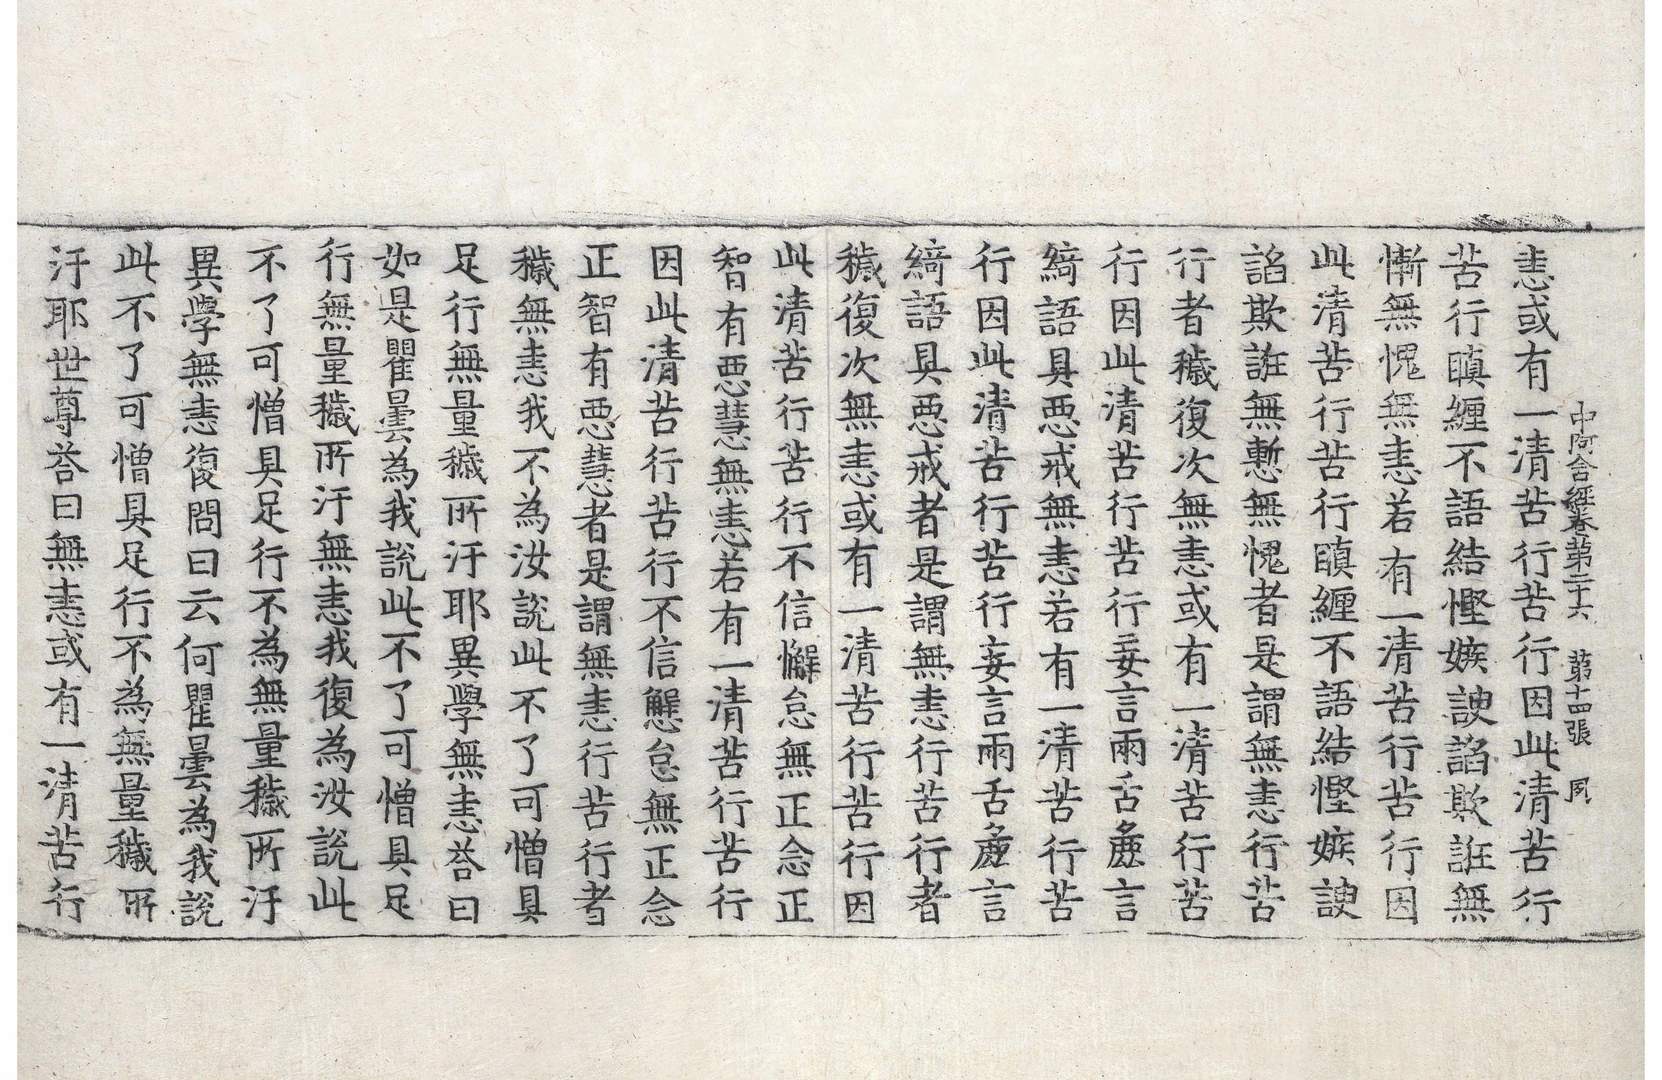 中阿含經卷第二十六 第十四張 夙
恚或有一清苦行苦行因此清苦行
苦行瞋纏不語結慳嫉諛諂欺誑無
慚無愧無恚若有一清苦行苦行因
此清苦行苦行瞋纏不語結慳嫉諛
諂欺誑無慙無愧者是謂無恚行苦
行者穢復次無恚或有一清苦行苦
行因此清苦行苦行妄言兩舌麁言
綺語具惡戒無恚若有一清苦行苦
行因此清苦行苦行妄言兩舌麁言
綺語具惡戒者是謂無恚行苦行者
穢復次無恚或有一清苦行苦行因
此清苦行苦行不信懈怠無正念正
智有惡慧無恚若有一清苦行苦行
因此清苦行苦行不信懈怠無正念
正智有惡慧者是謂無恚行苦行者
穢無恚我不為汝說此不了可憎具
足行無量穢所汙耶異學無恚荅曰
如是瞿曇為我說此不了可憎具足
行無量穢所汙無恚我復為汝說此
不了可憎具足行不為無量穢所汙
異學無恚復問曰云何瞿曇為我說
此不了可憎具足行不為無量穢所
汙耶世尊荅曰無恚或有一清苦行